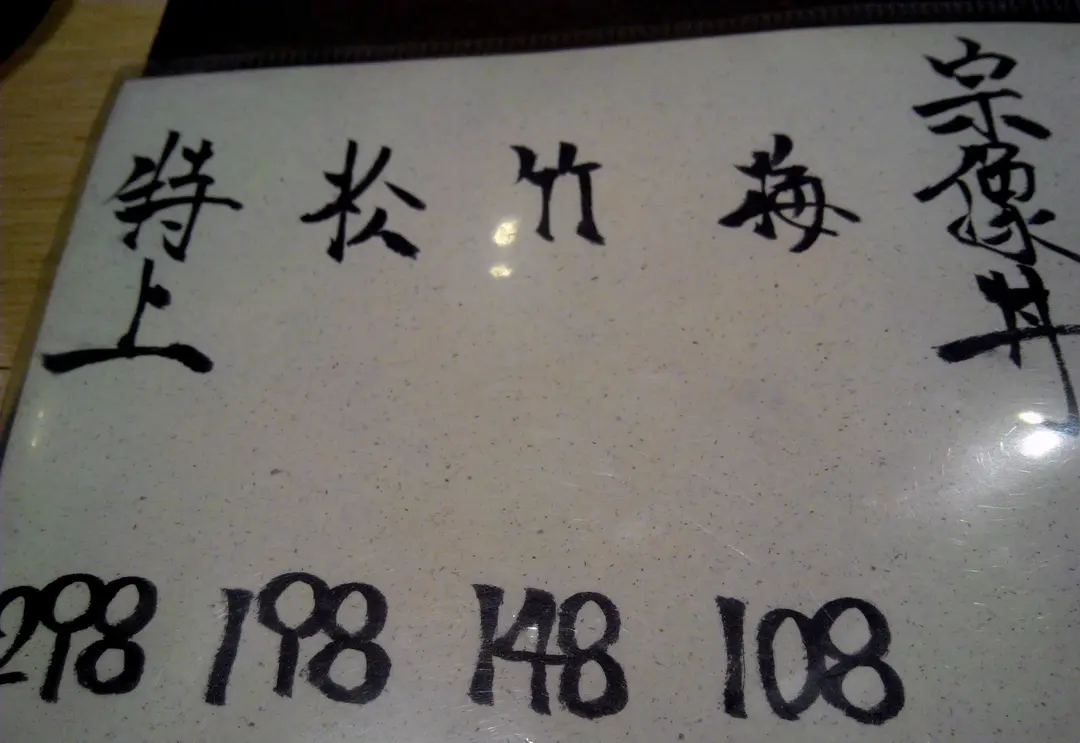 宗像丼
梅 108
竹 148
松 198
特上 298